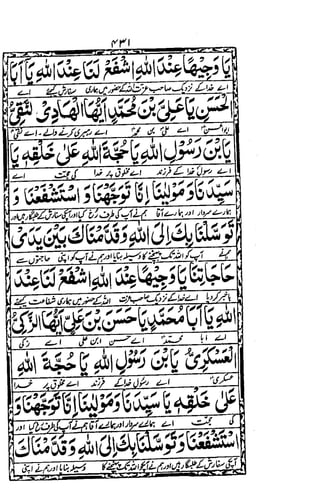 ۴۳۱
يَا وَجِيْهًا عِنْدَ اللهِ اشْفَعْ لَنَا عِنْدَ اللهِ يَا أَبَا
اے خدا کے نزدیک صاحب عزت اللہ کے حضور میں ہماری سفارش کیجئے اے
الْحَسَنِ يَا عَلِيَّ بْنَ مُحَمَّدٍ اَيُّهَا الْهَادِى النَّقِىُّ
ابو الحسن اے علی بن محمد اے رہبری کرنے والے۔ اے نقی
يَا بْنَ رَسُوْلِ اللهِ يَا حُجَّةَ اللهِ عَلٰى خَلْقِهٖ يَا
اے رسول خدا کے فرزند اے مخلوق پر خدا کی حجت اے
سَيِّدَنَا وَمَوْلٰينَا اِنَّا تَوَجَّهْنَا وَاسْتَشْفَعْنَا وَ
ہمارے سردار اور ہمارے آقا ہم نے آپ کی طرف رخ کیا اور آپکی سفارش کے طلبگار ہیں اور
تَوَسَّلْنَا بِكَ اِلَى اللهِ وَقَدَّمْنَاكَ بَيْنَ يَدَىْ
ہم نے آپ کو اللہ تک پہنچنے کا وسیلہ بنایا اور ہم نے آپ کو اپنی حاجتوں سے
حَاجَاتِنَا يَا وَجِيْهًا عِنْدَ اللهِ اشْفَعْ لَنَا عِنْدَ
اے خدا کے نزدیک صاحب عزت اللہ کے حضور میں ہماری شفاعت کیجئے
اللهِ يَا اَبَا مُحَمَّدٍ يَا حَسَنَ بْنَ عَلِىٍّ اَيُّهَا الزَّكِىُّ
اے ابا محمد اے حسن ابن علی اے زکی
الْعَسْكَرِىُّ يَا بْنَ رَسُوْلِ اللهِ يَا حُجَّةَ اللهِ
عسکری اے رسول خدا کے فرزند اے مخلوق پر خدا
عَلٰى خَلْقِهٖ يَا سَيِّدَنَا وَمَوْلٰينَا اِنَّا تَوَجَّهْنَا وَ
کی حجت اے ہمارے سردار اور ہمارے آقا ہم نے آپ کی طرف رخ کیا اور
اسْتَشْفَعْنَا وَتَوَسَّلْنَا بِكَ اِلَى اللهِ وَقَدَّمْنَاكَ
آپکی سفارش کے طلبگار ہیں اور ہم نے آپکو اللہ تک پہنچنے کا وسیلہ بنایا اور ہم نے اپنی